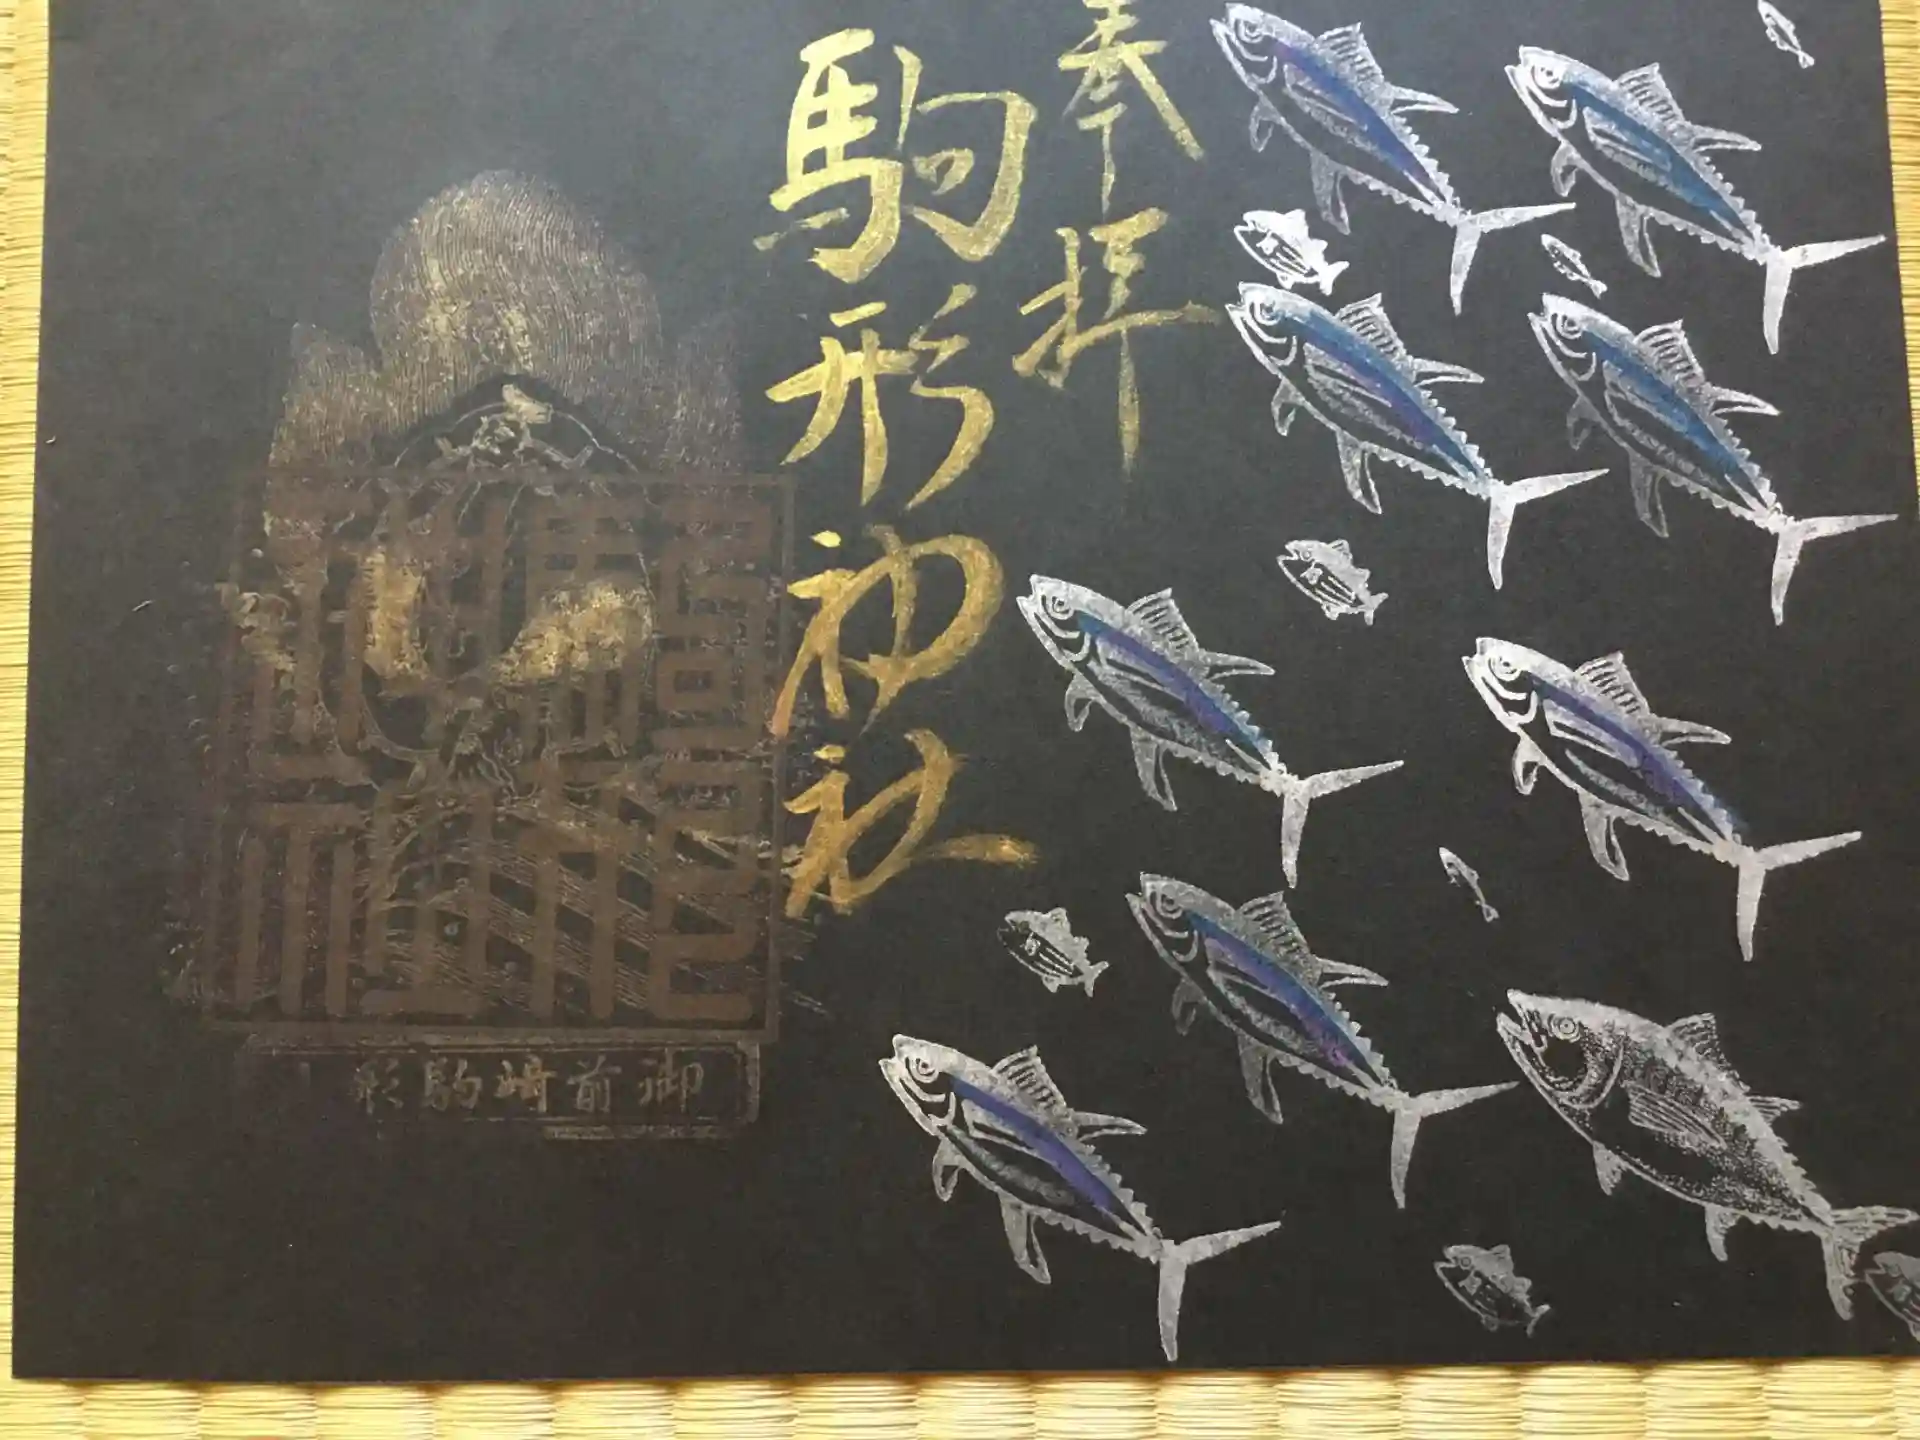 奉拝
駒形神社
御前崎駒形